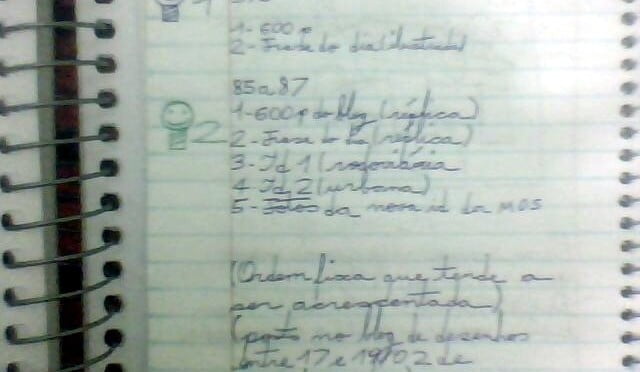 1
1-600 p
2-Frase do dia (ilustrada)
85 a 87
1-600 p do blog (réplica)
2
2-Frase do dia (réplica)
3-Id 1 (
4-Id 2 (urbana)
5-Fotos da nova id da MOS
(Ordem fixa que tende a
ser acrescentada)
(posts no blog de desenhos
entre 17 e 19/02 de